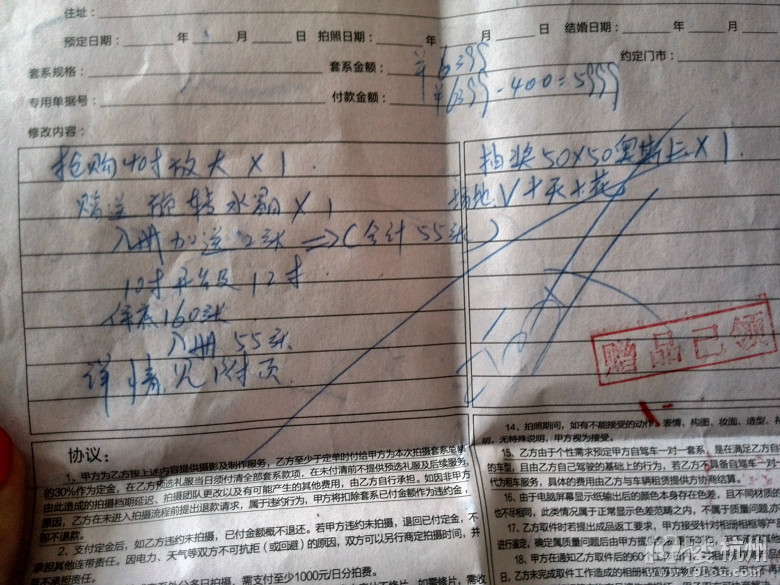 住址：
预定日期： 年 月 日 拍照日期： 年 月 日 结婚日期：
套系规格： 套系金额：￥6399 约定门市：
专用单据号： 付款金额：￥6399-400=5999
修改内容：
抢购40寸放大×1. 抽奖50×50奥斯卡×1.
赠送 旋转水晶×1 场地V+天+花
入册加送2张=>(合计55张)
10寸升级12寸.
保底160张
入册55张
详情见附页
赠品已领
协议：
1、甲方为乙方按上述内容提供摄影及制作服务，乙方至少于定单时付给甲方为本次拍摄套系定额
的30%作为定金，在乙方预选礼服当日须付清全部套系款项，在未付清前不提供预选礼服及后续服务，
由此造成的拍摄档期延迟、拍摄团队更改以及有可能产生的其他费用，由乙方自行承担。如因非甲方
原因，乙方在未进入拍摄流程前提出退款请求，属于违约行为，甲方将扣除套系已付金额作为违约金，
不退款。
2、支付定金后，如乙方违约未拍摄，已付金额概不退还。若甲方违约未拍摄，退回已付定金，不
承担其他连带责任。因电力、天气等双方不可抗拒（或回避）的原因，双方可以另行商定拍摄时间，并
不承担责任。
外各多日拍摄，需支付至少1000元/日分拍费。
14、拍照期间，如有不能接受的动作、表情、构图、妆面、造型、
明，无特殊说明，甲方视为接受。
15、乙方由于个性需求预定甲方自驾车一对一套系，是在满足乙方自
的车型，且由乙方自己驾驶的基础上的行为，若乙方不具备自驾车一对
代为租车服务，具体的费用由乙方与车辆租赁提供方协商结算。
16、由于电脑屏幕显示纸输出后的颜色本身存在色差，且不同材质
，此类情况属于正常显示色差范畴之内，不属于质量问题
17、乙方取件时若提出成品返工要求，甲方接受针对相册相框等
进行鉴定，确定属质量问题后由甲方
18、甲方在通知乙方取件后的60个
日，乙方未完成取件工作造成的相册相框等